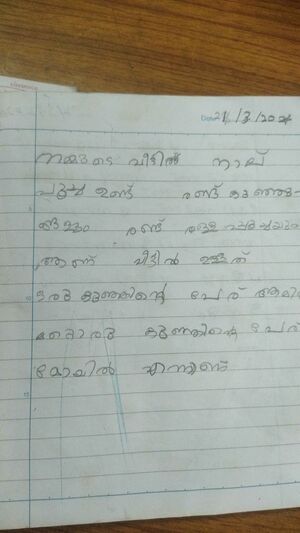 Date 21/3/202
നമ്മുടെ വീട്ടിൽ നാല്
പൂച്ച ഉണ്ട് രണ്ട് കുഞ്ഞു
ങ്ങളും രണ്ട് തള്ള പൂച്ചയും
ആണ് വീട്ടിൽ ഉള്ളത്
ഒരു കുഞ്ഞിന്റെ പേര്
മറ്റൊരു കുഞ്ഞിന്റെ പേര്
എന്നാണ്